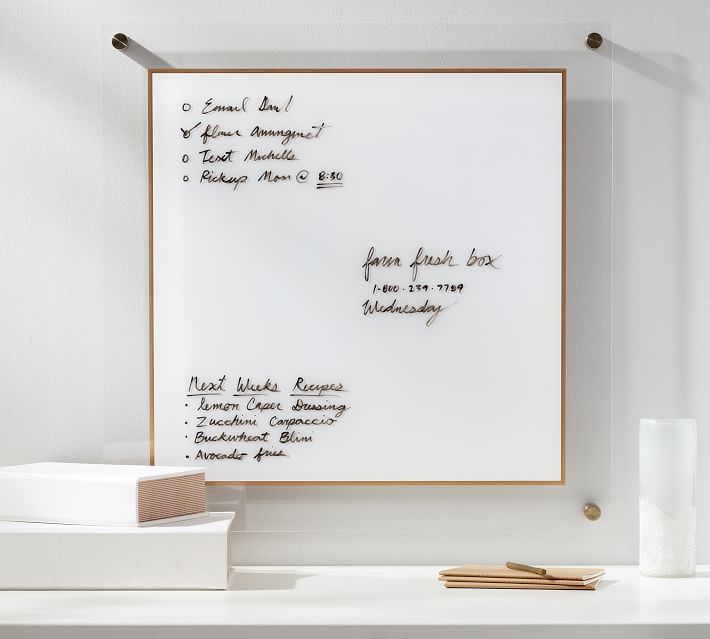 Email Dan!
flower arrangment
Text Michelle
Pickup Mom @ 8:30
farm fresh box
1-800-239-7789
Wednesday
Next Weeks Recipes
Lemon Caper Dressing
Zucchini Carpaccio
Buckwheat Blini
Avocado fries